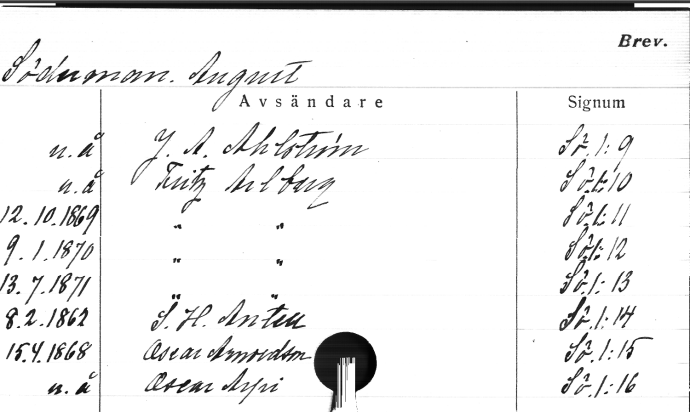 Brev.
Söderman. August
Avsändare Signum
u. å J. A. Ahlström Sö. 1: 9
u. å Fritz Arlberg Sö. 1: 10
12. 10. 1869 " " Sö. 1: 11
9. 1. 1870 " " Sö. 1: 12
13. 7. 1871 " " Sö. 1: 13
8. 2. 1862 S. H. Sö. 1: 14
15. 4. 1868 Oscar Arnoldson Sö. 1: 15
u. å Oscar Arpi Sö. 1: 16